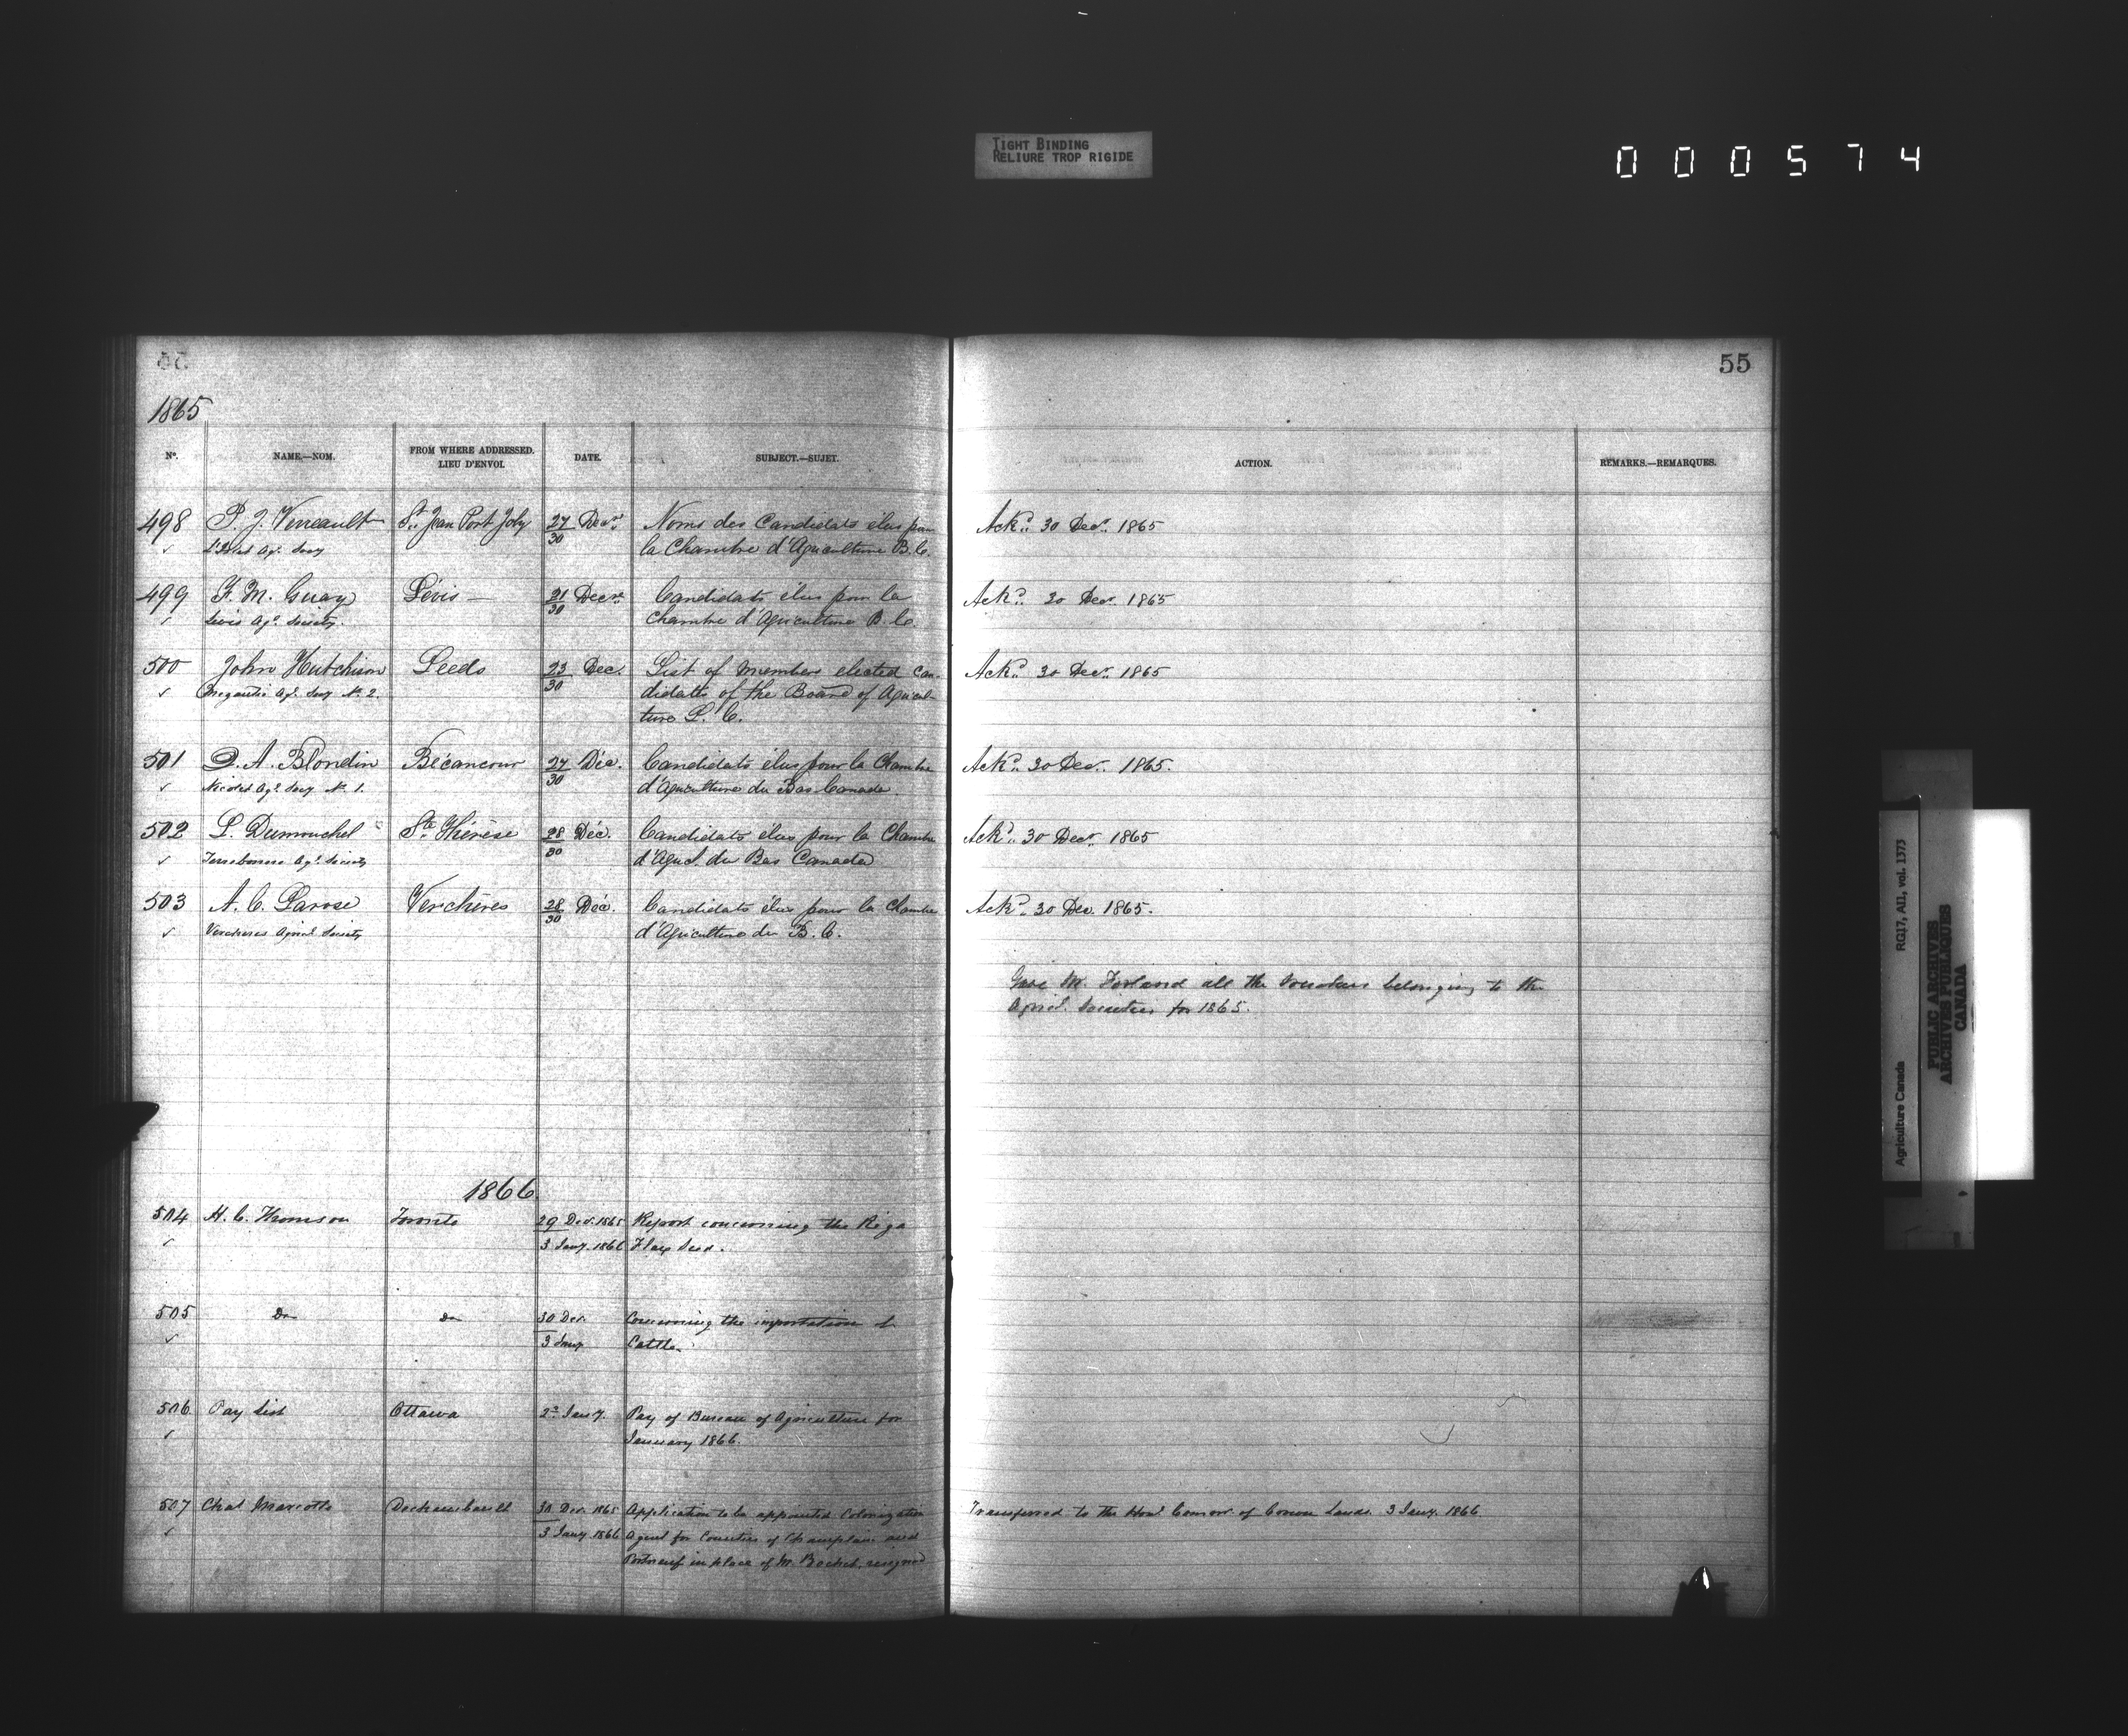 TIGHT BINDING
RELIURE TROP RIGIDE
000574
55
1865
No.
NAME.—NOM.
FROM WHERE ADDRESSED.
LIEU D'ENVOI.
DATE.
SUBJECT.—SUJET.
ACTION.
REMARKS.—REMARQUES.
498 P. J. Verreault St. Jean Port Joly 27 Decr. Noms des Candidats élus pour Ackd. 30 Decr. 1865
✓ L'Islet Agl. Socy 30 la Chambre d'Agriculture B. C.
499 F. M. Guay Lévis — 21 Decr. Candidats élus pour la Ackd. 30 Decr. 1865
✓ Levis Agl. Society. 30 Chambre d'Agriculture B. C.
500 John Hutchison Leeds 23 Dec. List of members elected can- Ackd. 30 Decr. 1865
✓ Megantic Agl. Socy No. 2. 30 didats of the Board of Agricul-
ture L. C.
501 D. A. Blondin Bécancour 27 Déc. Candidats élus pour la Chambre Ackd. 30 Decr. 1865.
✓ Nicolet Agl. Socy No. 1. 30 d'Agriculture du Bas Canada.
502 L. Dumouchel Ste Thérèse 28 Déc. Candidats élus pour la Chambre Ackd. 30 Decr. 1865
✓ Terrebonne Agl. Society 30 d'Agricl. du Bas Canada
503 A. C. Larose Verchères 28 Déc. Candidats élus pour la Chambre Ackd. 30 Dec. 1865.
✓ Vercheres Agricl. Society 30 d'Agriculture du B. C.
Gave M. Forland all the Vouchers belonging to the
Agricl. Societies for 1865.
1866.
504 H. C. Thomson Toronto 29 Dec. 1865 Report concerning the Riga
✓ 3 Jany. 1866 Flax Seed.
505 Do Do 30 Dec. Concerning the importation of
✓ 3 Jany Cattle.
506 Pay List Ottawa 2d Jany. Pay of Bureau of Agriculture for
✓ January 1866.
507 Chas Marcotte Deschambault 30 Dec. 1865 Application to be appointed Colonization Transferred to the Honl Comisr. of Crown Lands. 3 Jany. 1866
✓ 3 Jany 1866 Agent for Counties of Champlain and
Portneuf in place of M. Bochet, resigned
Agriculture Canada RG17, AII, vol. 1373
PUBLIC ARCHIVES
ARCHIVES PUBLIQUES
CANADA